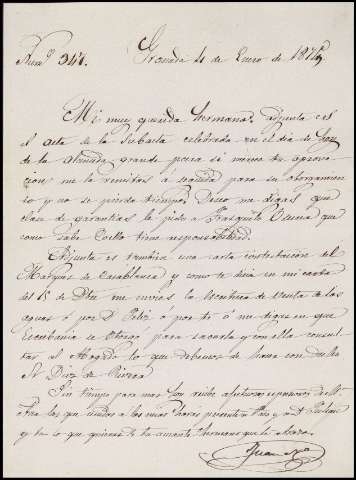 Num.º 347. Granada 4 de Enero de 1876,
Mi muy querida hermana: adjunta es
el acta de la Subasta celebrada en el dia de hoy
de la almunia grande para si merece tu aprova
cion, me la remitas á seguida para su otorgamien
to y no se pierda tiempo. Deceo me digas que
clase de garantias la pido a Frasquito Osuna que
como sabe Coello tiene responsabilidad.
Adjunta es tambien una carta contestacion del
Marques de Casablanca y como te decia en mi carta
del 15 de Dbre me envies la escritura de venta de las
aguas ó por D. ó por ti ó me digas en que
Escribania se otorgó para sacarla y con ella consul
tar al Abogado lo que debemos de hacer con dicho
Sr. Diaz de Rivera
Sin tiempo para mas
las que unidos á las mias
y tu lo que quieras de tu amante hermano que te abraza.
Juan